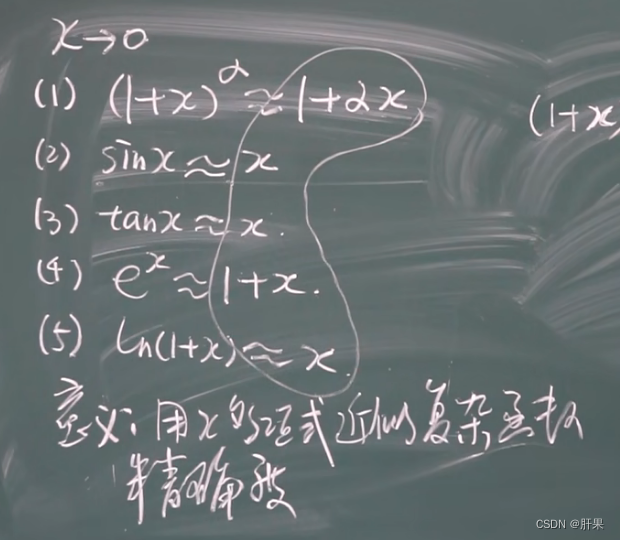 x→0
(1) (1+x)^α ≈ 1+αx
(1+x)
(2) sinx ≈ x
(3) tanx ≈ x.
(4) e^x ≈ 1+x.
(5) ln(1+x) ≈ x.
意义: 用x的多项式近似复杂函数
精确度
CSDN @肝果